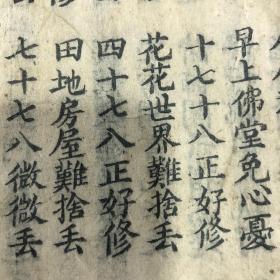 早上佛堂免心憂
十七十八正好修
花花世界難捨丟
四十七八正好修
田地房屋難捨丟
七十七八微微丟